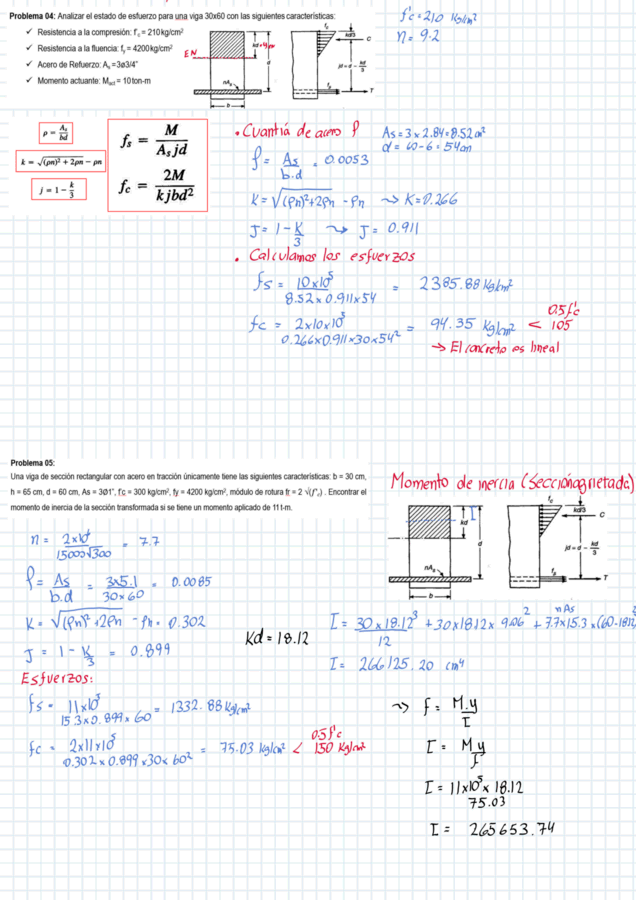 Problema 04: Analizar el estado de esfuerzo para una viga 30x60 con las siguientes características:
✓ Resistencia a la compresión: f'c = 210 kg/cm²
✓ Resistencia a la fluencia: fy = 4200 kg/cm²
✓ Acero de Refuerzo: As =3ø3/4"
✓ Momento actuante: Mact = 10 ton-m
EN
kd
d
nAs
b
fc
kd/3
C
jd = d - kd/3
fs
T
f'c = 210 kg/cm²
n = 9.2
ρ = As/bd
k = √(ρn)² + 2ρn - ρn
j = 1 - k/3
fs = M/As jd
fc = 2M/kjbd²
• Cuantía de acero ρ
As = 3 x 2.84 = 8.52 cm²
d = 60-6 = 54cm
ρ = As/b.d = 0.0053
K = √(ρn)²+2ρn - ρn ⇝ K=0.266
J = 1 - K/3 ⇝ J = 0.911
• Calculamos los esfuerzos
fs = 10x10⁵/8.52x0.911x54 = 2385.88 Kg/cm²
fc = 2x10x10⁵/0.266x0.911x30x54² = 94.35 Kg/cm² < 0.5f'c 105
→ El concreto es lineal
Problema 05:
Una viga de sección rectangular con acero en tracción únicamente tiene las siguientes características: b = 30 cm,
h = 65 cm, d = 60 cm, As = 3Ø1", f'c = 300 kg/cm², fy = 4200 kg/cm², módulo de rotura fr = 2 √(f'c) . Encontrar el
momento de inercia de la sección transformada si se tiene un momento aplicado de 11 t-m.
Momento de inercia (Sección agrietada)
I
kd
d
nAs
b
fc
kd/3
C
jd = d - kd/3
fs
T
n = 2x10⁶/15000√300 = 7.7
ρ = As/b.d = 3x5.1/30x60 = 0.0085
K = √(ρn)²+2ρn - ρn = 0.302
J = 1 - K/3 = 0.899
Kd = 18.12
Esfuerzos:
fs = 11x10⁵/15.3x0.899x60 = 1332.88 Kg/cm²
fc = 2x11x10⁵/0.302x0.899x30x60² = 75.03 kg/cm² < 0.5f'c 150 Kg/cm²
nAs
I = 30x18.12³/12 + 30x18.12x 9.06² + 7.7x15.3x(60-18.12
I = 266125.20 cm⁴
⇝ f = M.y/I
I = My/f
I = 11x10⁵x18.12/75.03
I = 265653.74